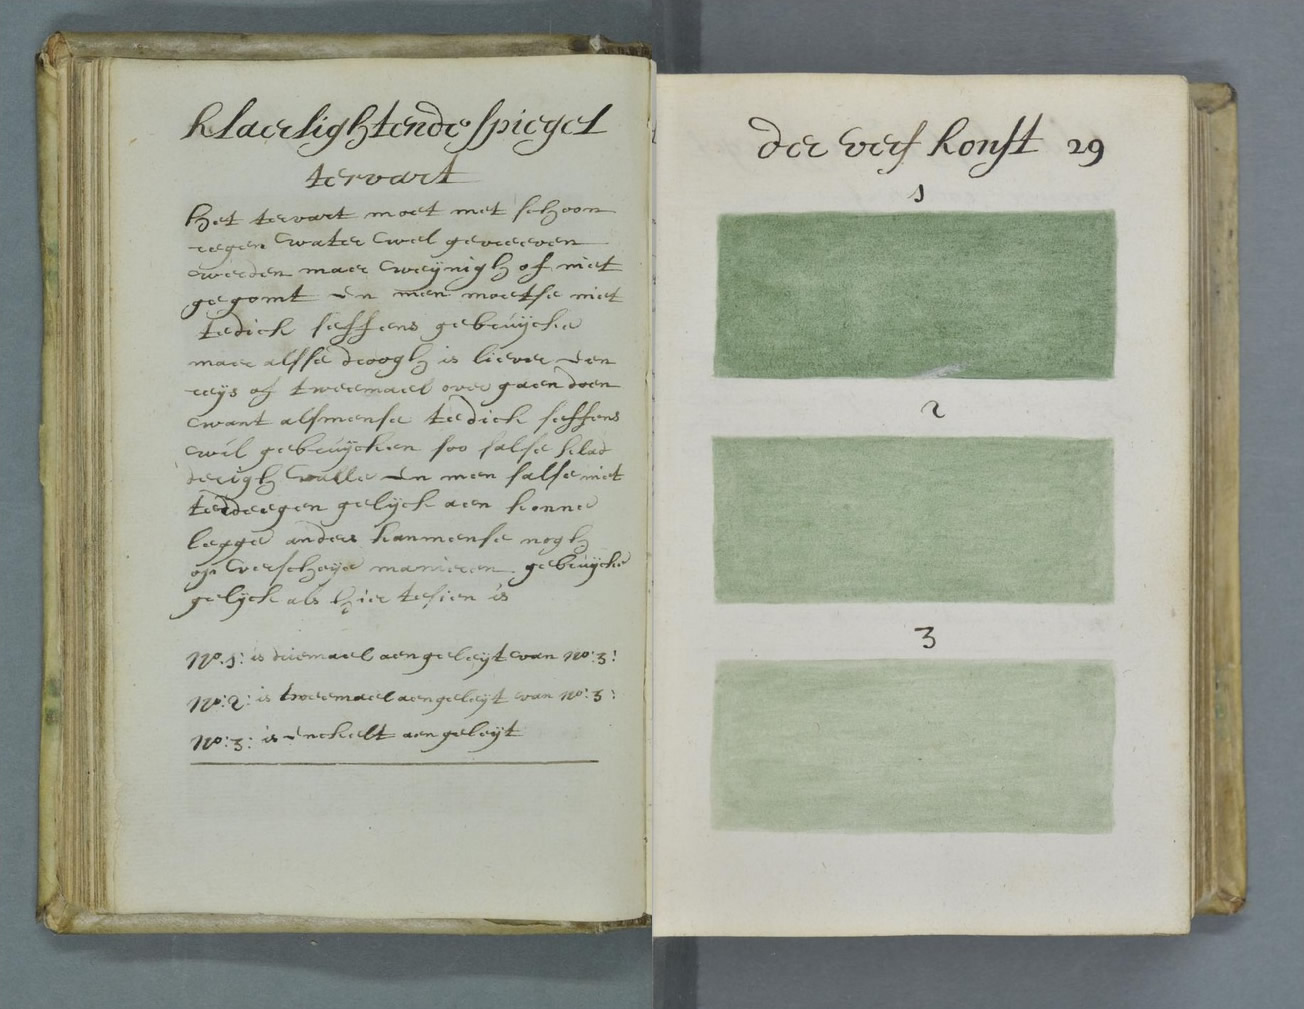 klaerlightende spiegel
tervart
het tervart moet met schoon
regen water wel gevreeven
werden maer weijnigh of niet
gegomt en men moetse niet
te dick seffens gebruijcke
maer alsse droogh is liever een
reijs of tweemael over gaen doen
want alsmense te dick seffens
wil gebruijcken soo salse klad
derigh valle en men salse niet
terdeegen gelijck aen konne
legge anders kanmense nogh
op verscheije manieren gebruijcke
gelijck als hier te sien is
No: 1: is driemael aengeleijt van No: 3:
No: 2: is tweemael aengeleijt van No: 3:
No: 3: is enckelt aengeleijt
der verf konst 29
1
2
3